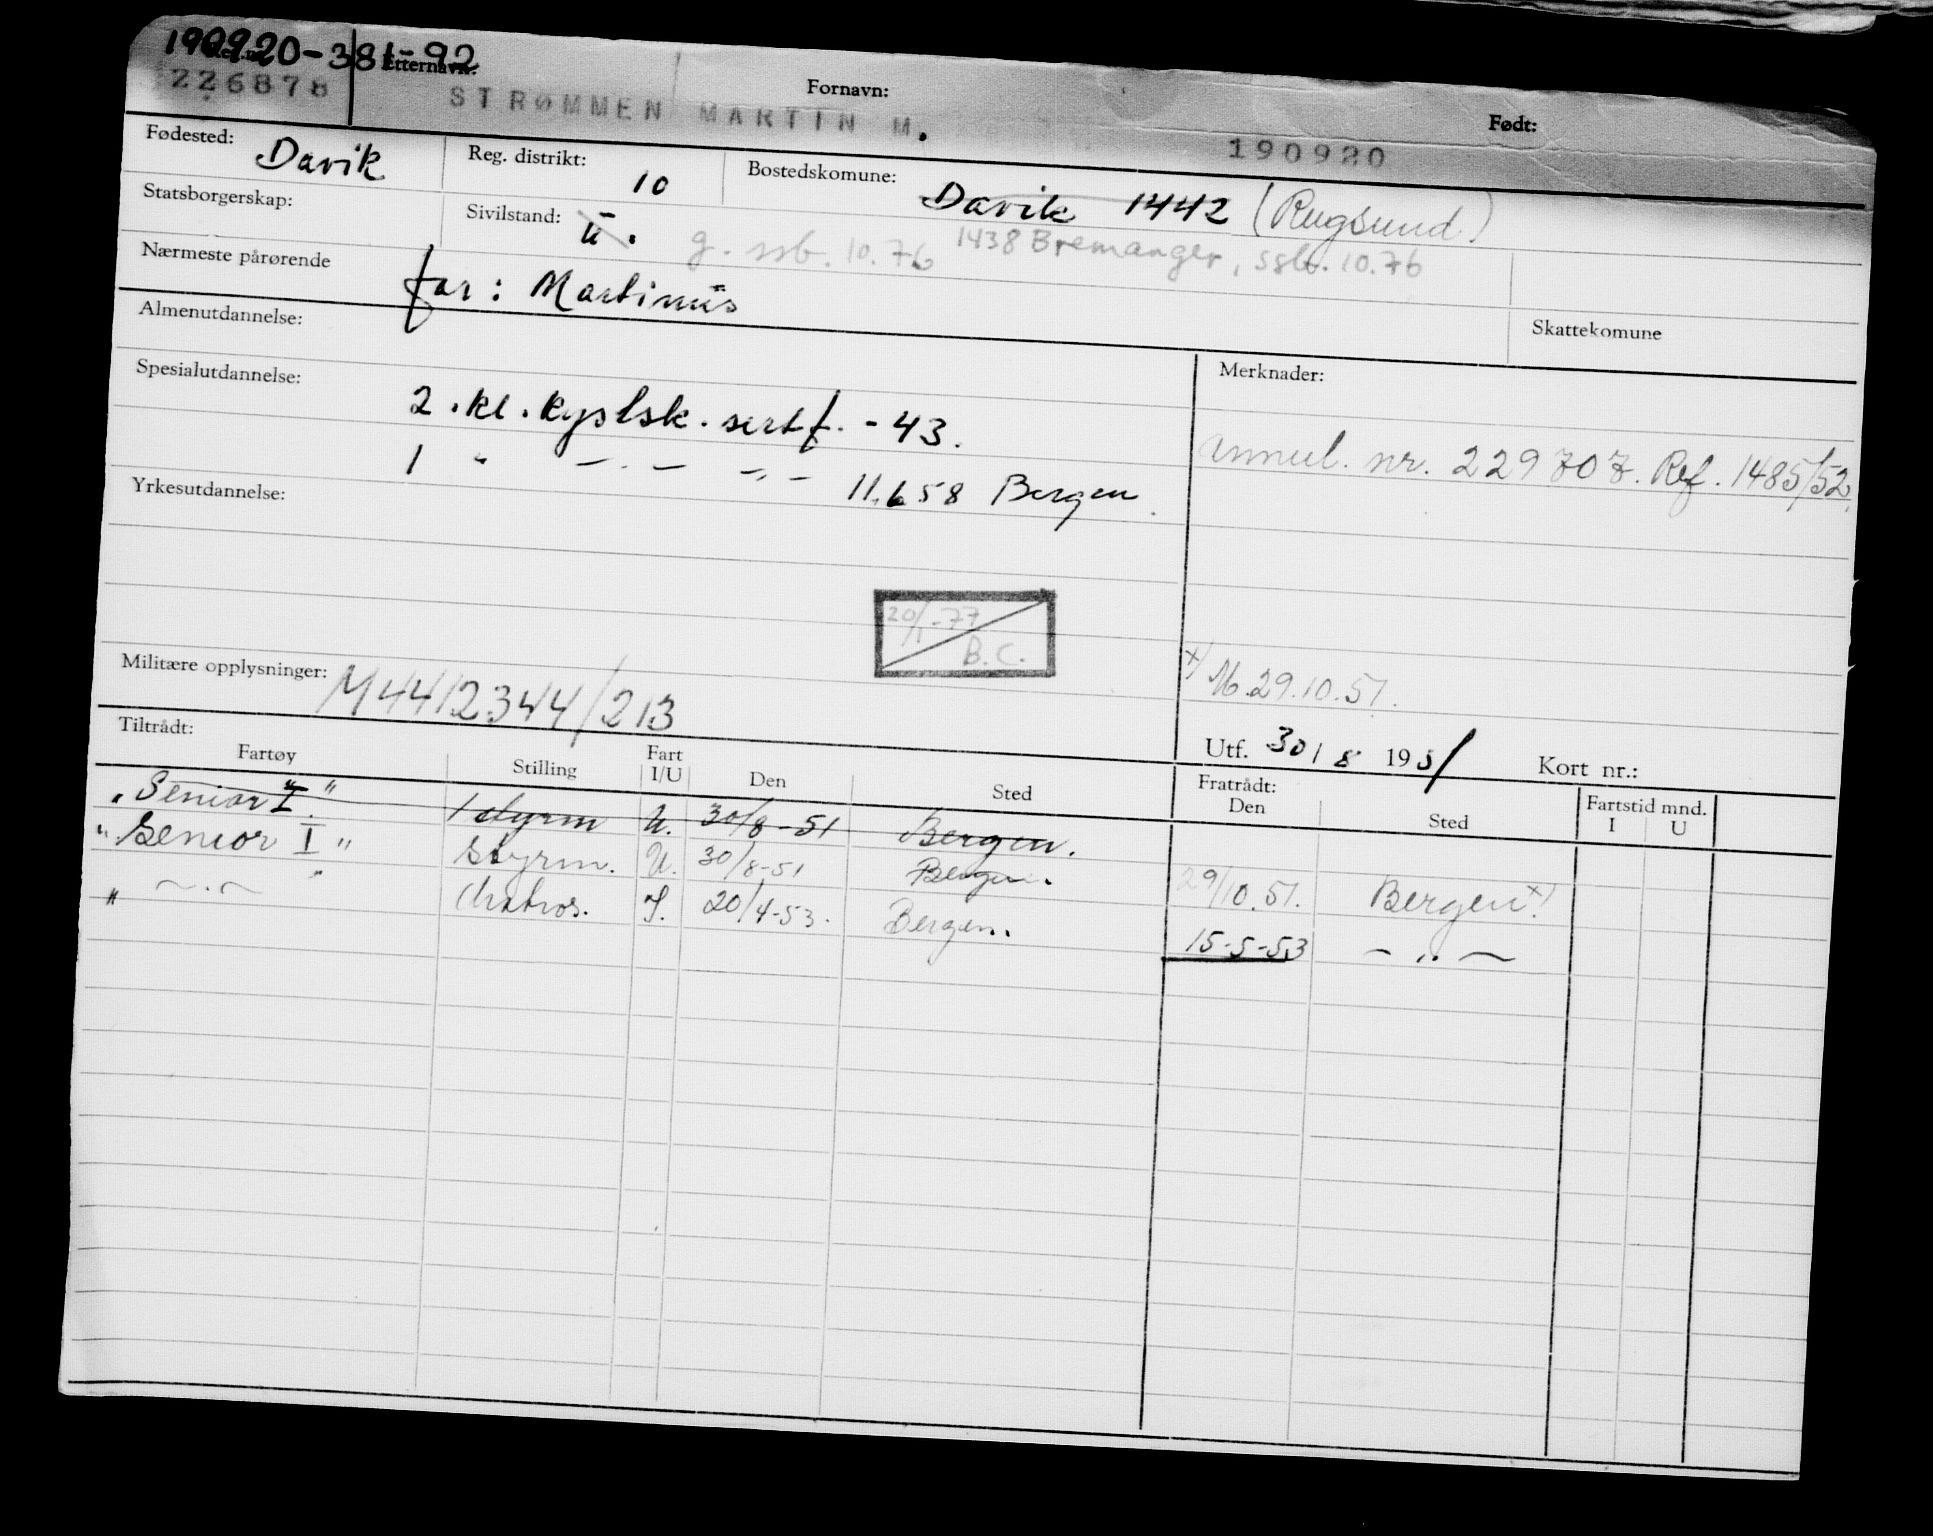 190920-38192
226878 Etternavn: STRØMMEN MARTIN M. Fornavn: Født: 190920
Fødested: Davik Reg. distrikt: 10 Bostedskomune: Davik 1442 (Rugsund)
Statsborgerskap: Sivilstand: u. g. ssb. 10.76 1438 Bremanger, ssb. 10.76
Nærmeste pårørende far: Martinus
Skattekomune
Almenutdannelse:
Spesialutdannelse: 2.kl.kystsk.sertf.-43.
1 " —.— —"— 11.6 58 Bergen.
Merknader:
annul. nr. 229707. Ref. 1485/52.
Yrkesutdannelse:
20/1-77
B.C.
Militære opplysninger: M4412344/213
x) 29.10.51.
Utf. 30/8 1951 Kort nr.:
Tiltrådt:
Fartøy Stilling Fart I/U Den Sted
Fratrådt: Den Sted Fartstid mnd. I U
"Senior I" 1 styrm U. 30/8-51 Bergen.
"Senior I" Styrm. U. 30/8-51 Bergen. 29/10.51. Bergen x)
" —.— " Matros. I. 20/4-53. Bergen. 15-5-53 — " —